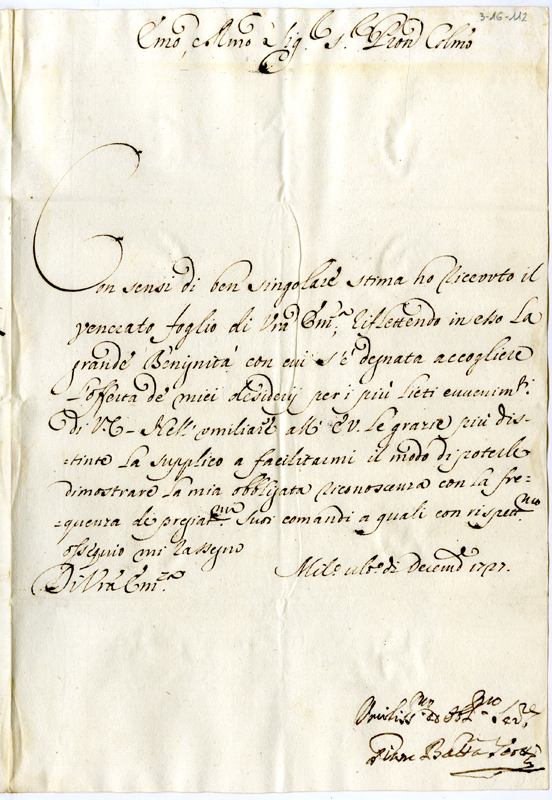 3-16-112
Emo, e Rmo Sig.r s.r Pron Colmo
Con sensi di ben singolare stima ho ricevuto il
venerato foglio di Vra Em.a, riflettendo in esso la
grande Benignità con cui s'è degnata accogliere
l'offerta de miei desiderij per i più lieti evvenim.ti
di V.E. Nell' umiliare all' E.V. le grazie più dis-
-tinte la supplico a facilitarmi il modo di poterle
dimostrare la mia obbligata riconoscenza con la fre-
-quenza de pregiat.mi suoi comandi a quali con rispett.mo
ossequio mi rassegno
Di Vra Em.za Mil.o ult.o di decemb 1727.
Umiliss.mo ed Obb.mo
Batta